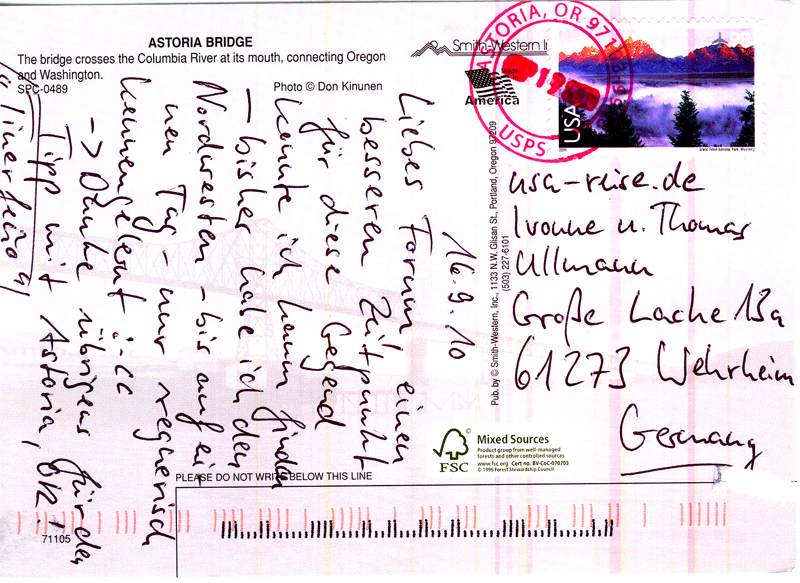 ASTORIA BRIDGE
The bridge crosses the Columbia River at its mouth, connecting Oregon
and Washington.
SPC-0489
Photo © Don Kinunen
Smith-Western In
Made
America
ASTORIA, OR 971
19
USPS
98
USA
Pub. by © Smith-Western, Inc., 1133 N.W. Glisan St., Portland, Oregon 97209
(503) 227-6101
16.9.10
Liebes Forum einen
besseren Zeitpunkt
für diese Gegend
konnte ich kaum finden
- bisher habe ich den
Nordwesten - bis auf ei-
nen Tag - nur regnerisch
kennengelernt :-((
-> Danke übrigens für den
Tipp mit Astoria, OR!
usa-reise.de
Ivonne u. Thomas
Ullmann
Große Lache 13a
61273 Wehrheim
Germany
FSC
Mixed Sources
Product group from well-managed
forests and other controlled sources
www.fsc.org Cert no. BV-CoC-070703
© 1996 Forest Stewardship Council
PLEASE DO NOT WRITE BELOW THIS LINE
71105